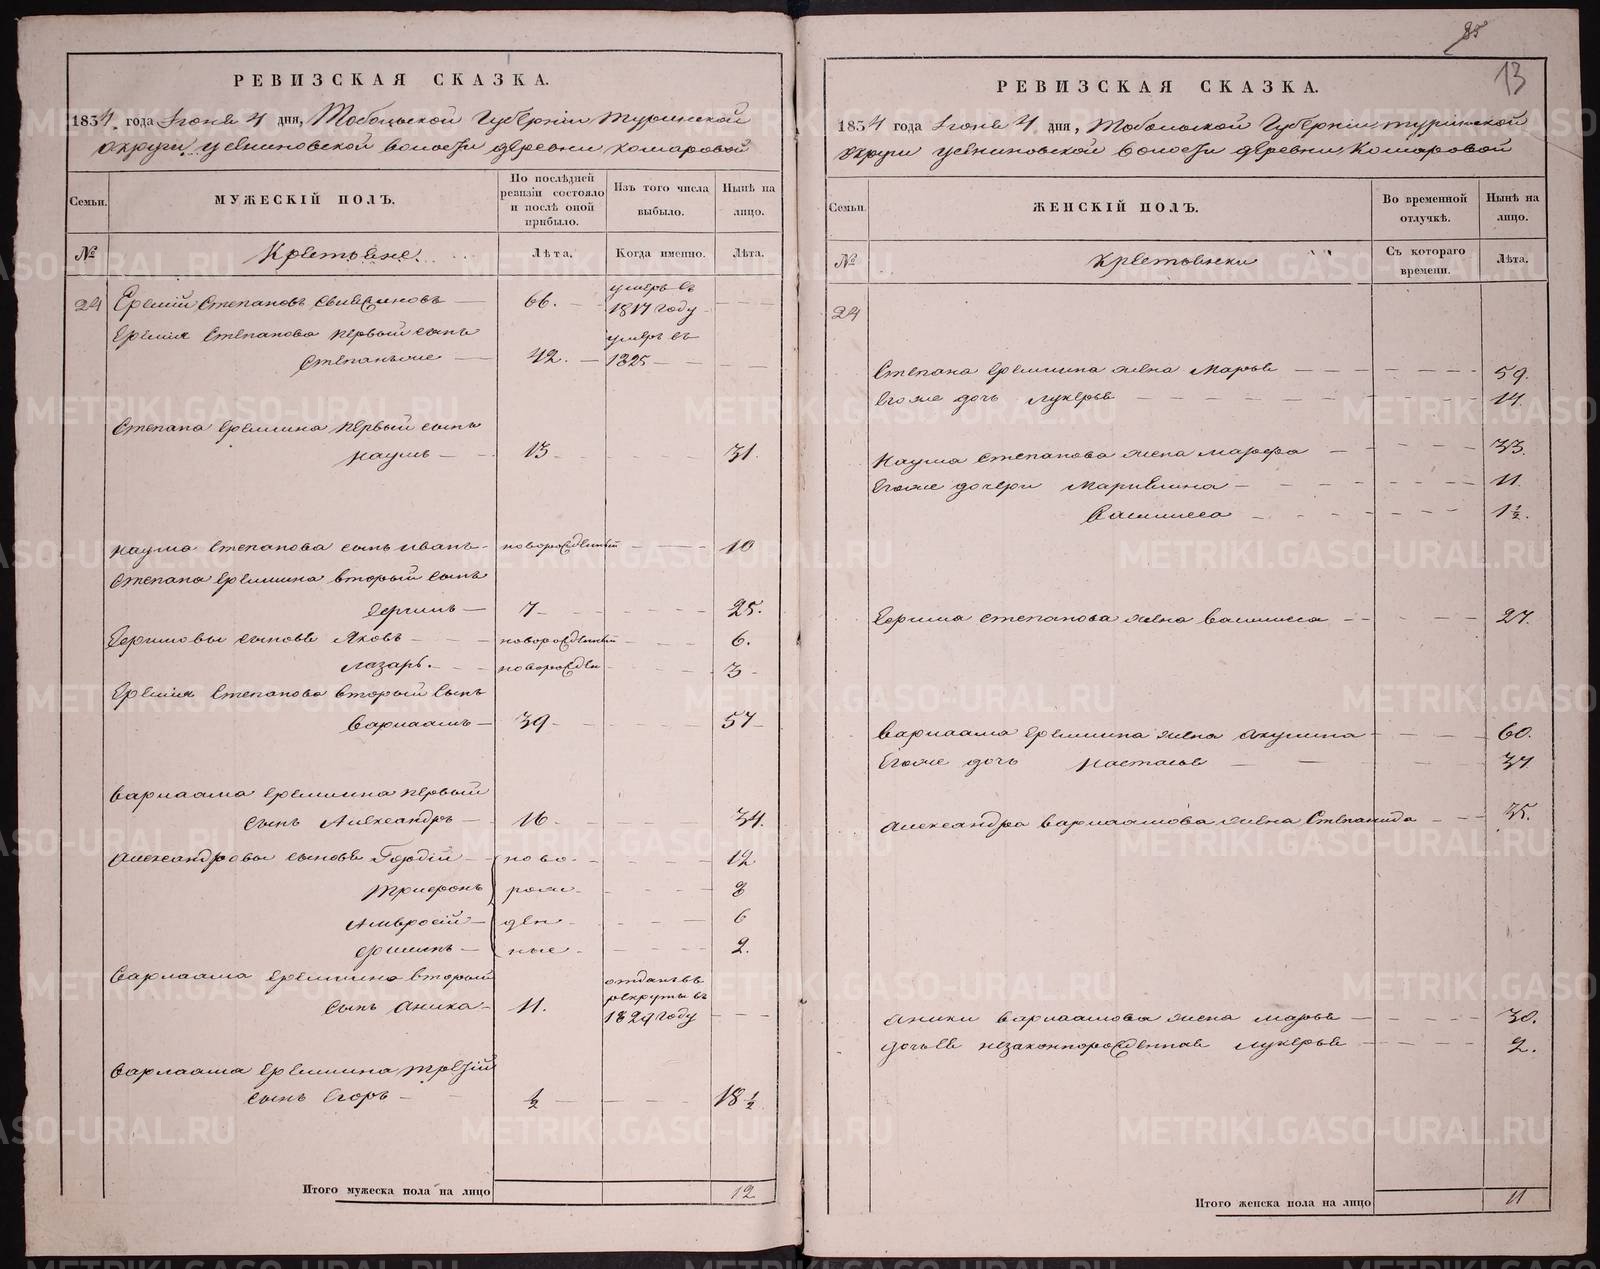 РЕВИЗСКАЯ СКАЗКА.
1834 года Іюня 4 дня, Тобольской Губерніи Туринской
округи Усениновской волости деревни Комаровой
Семьи.
МУЖЕСКІЙ ПОЛЪ.
По послѣдней ревизіи состояло и послѣ оной прибыло.
Изъ того числа выбыло.
Нынѣ на лицо.
№
Крестьяне.
Лѣта.
Когда именно.
Лѣта.
24 Еремій Степановъ 66. умеръ въ 1817 году
Еремія Степанова первый сынъ
Степанъ же 42. умеръ въ 1825
Степана Еремина первый сынъ
Наумъ 13 31.
Наума Степанова сынъ Иванъ новорожденный 10
Степана Еремина вторый сынъ
Ефимъ 7 25.
Ефимовы сыновья Яковъ новорожденный 6.
Лазарь. новорожден 3
Еремія Степанова вторый сынъ
Варлаамъ 39 57
Варлаама Еремина первый
сынъ Александръ 16 34.
Александровы сыновья Гордій ново- 12
Трифонъ рож- 8
Амвросій ден- 6
Филипъ ные 2.
Варлаама Еремина вторый
сынъ Аника 11. отданъ въ рекруты въ 1829 году
Варлаама Еремина третій
сынъ Егоръ ½ 18 ½
Итого мужеска пола на лицо 12
85
13
РЕВИЗСКАЯ СКАЗКА.
1834 года Іюня 4 дня, Тобольской Губерніи Туринской
округи Усениновской волости деревни Комаровой
Семьи.
ЖЕНСКІЙ ПОЛЪ.
Во временной отлучкѣ.
Нынѣ на лицо.
№
Крестьянки
Съ котораго времени.
Лѣта.
24
Степана Еремина жена Марья 59.
Его же дочь Лукерья 14.
Наума Степанова жена Марфа 33.
Его же дочери 11.
Василиса 1½.
Ефима Степанова жена Василиса 27.
Варлаама Еремина жена Акулина 60.
Его же дочь Настасья 37
Александра Варлаамова жена Степанида 35.
Аники Варлаамова жена Марья 30.
дочь ея незаконнорожденная Лукерья 2.
Итого женска пола на лицо 11
METRIKI.GASO-URAL.RU